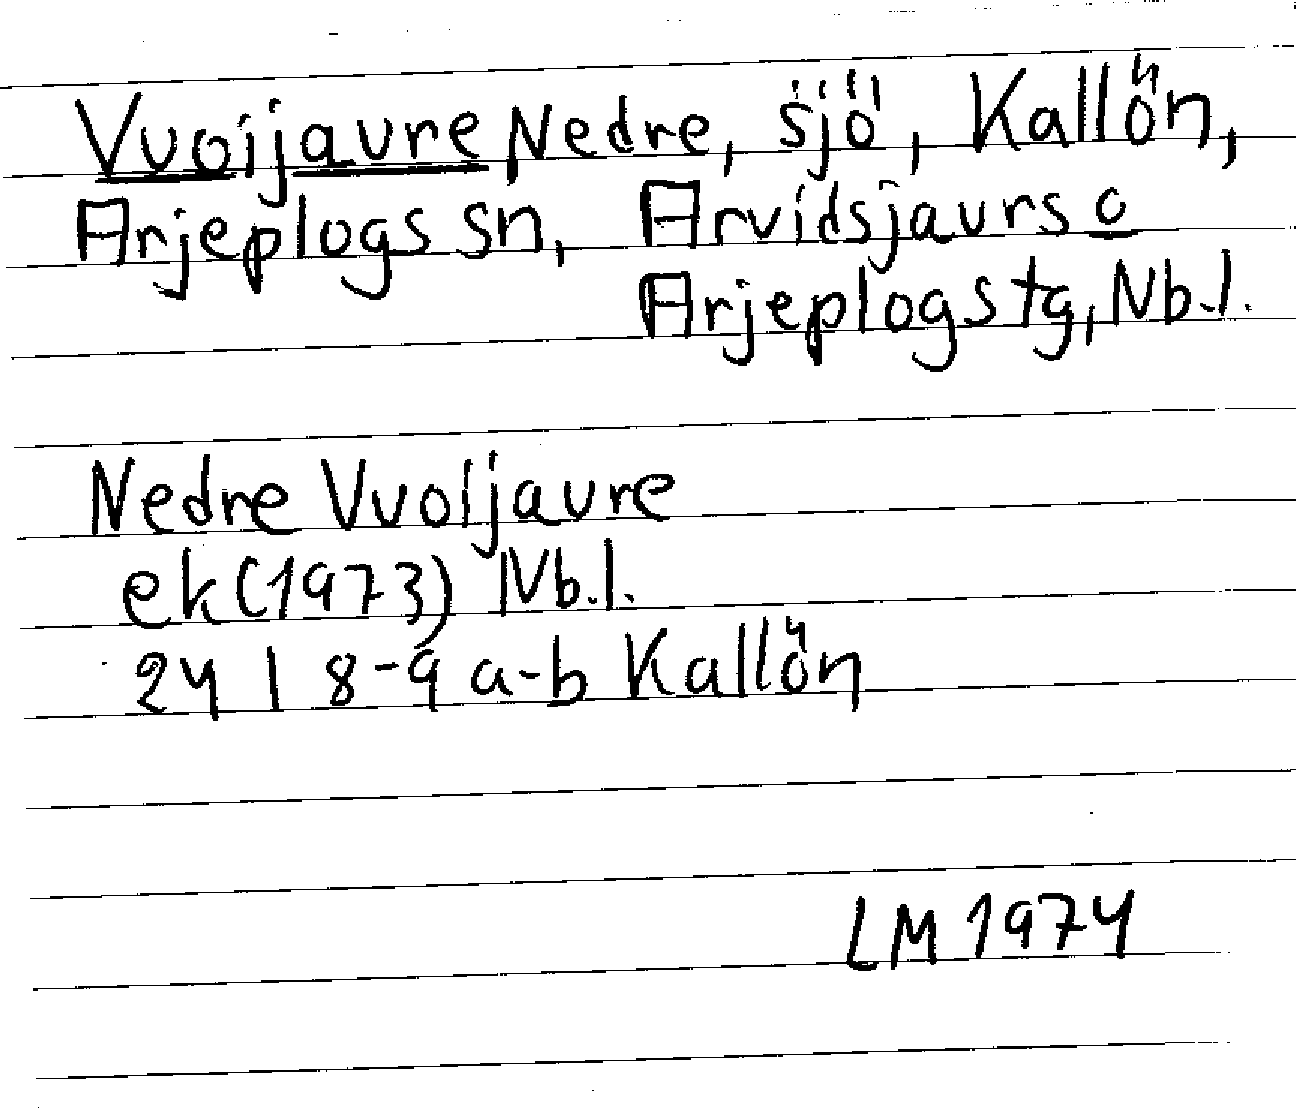 Vuoijaure Nedre, sjö, Kallön,
Arjeplogs sn, Arvidsjaurs o
Arjeplogs tg, Nb.l.
Nedre Vuoljaure
ek (1973) Nb.l.
24 I 8-9 a-b Kallön
LM 1974